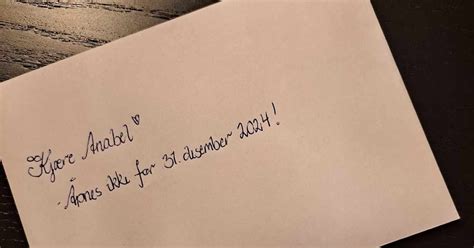 Kjære Anabel ♡
- Åpnes ikke før 31. desember 2024!